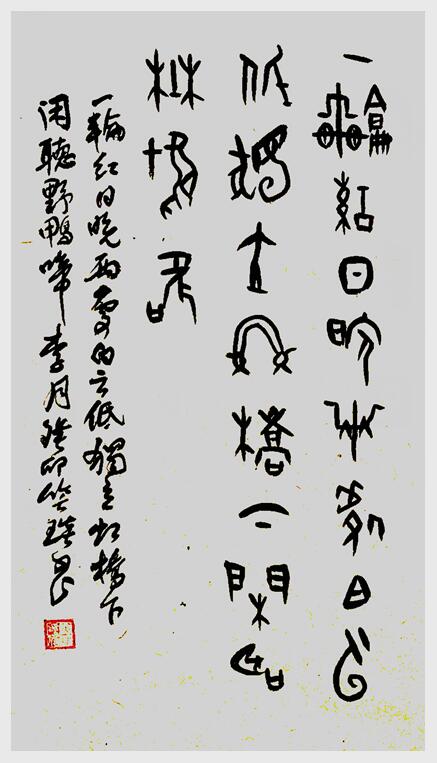 一輪紅日晚兩白云
低獨立虹橋下閑聽
野鴨啼
一輪紅日晚兩白云低獨立虹橋下
閑聽野鴨啼 李月癸卯